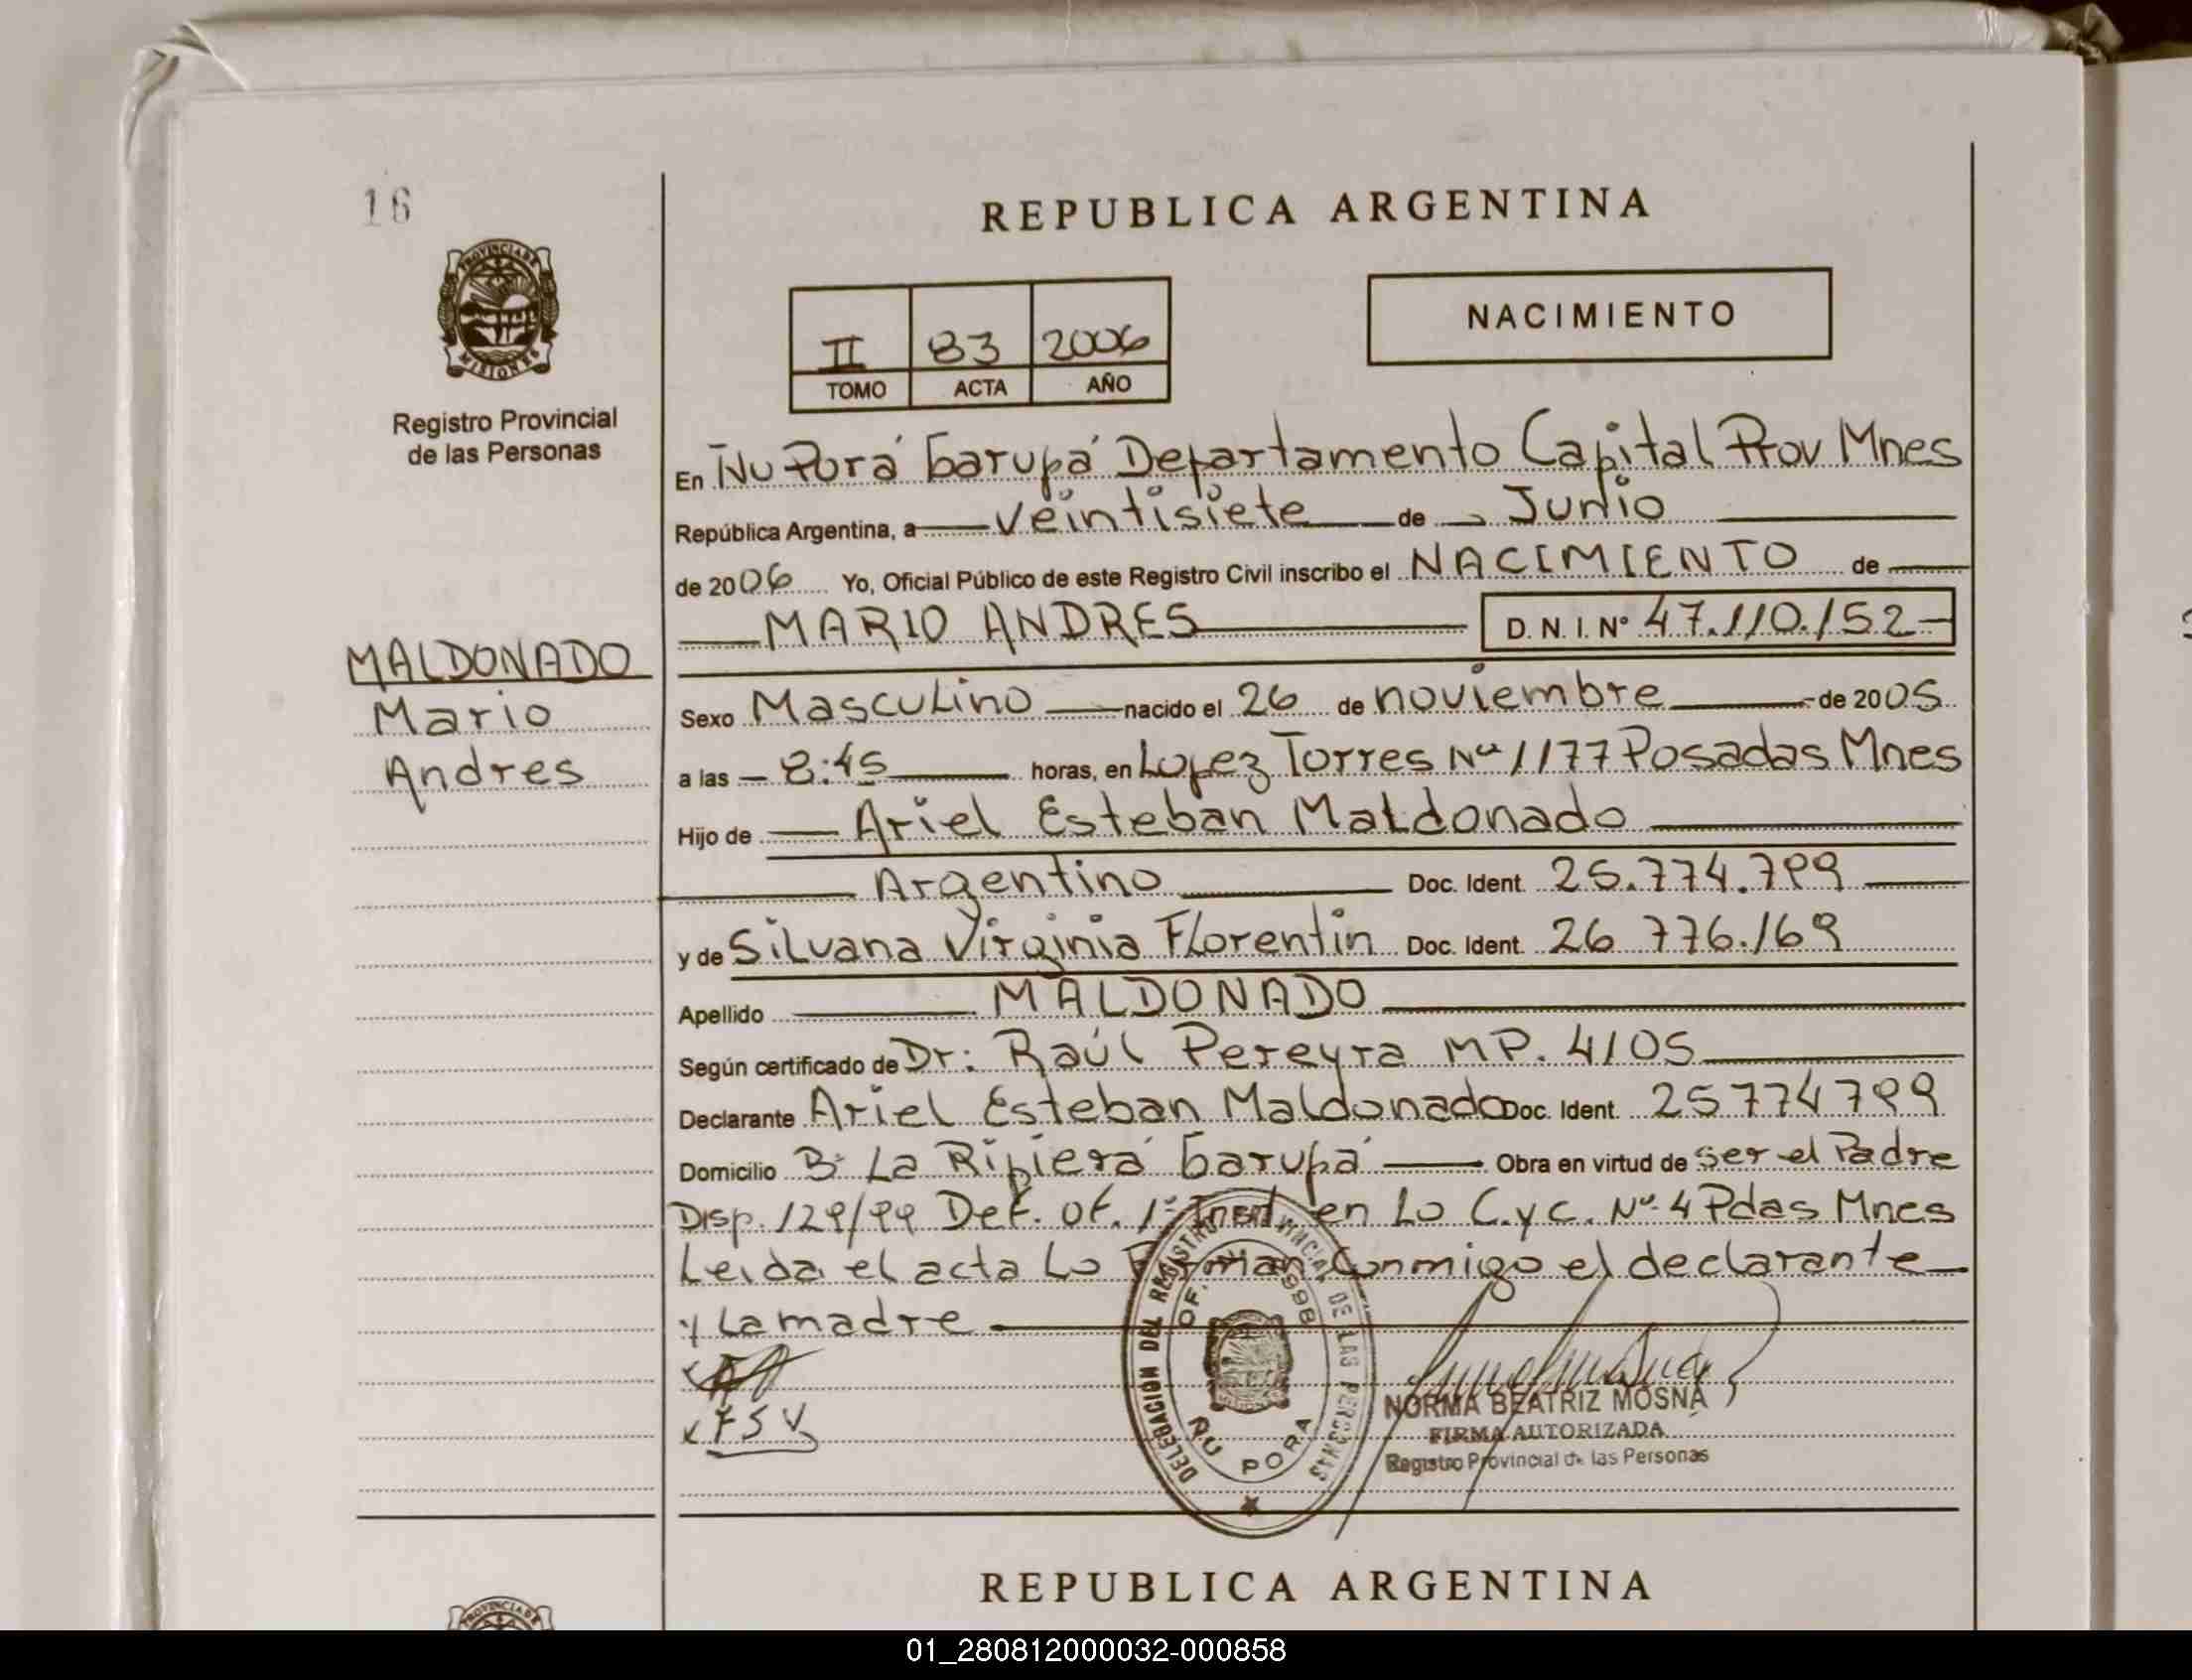 16
REPUBLICA ARGENTINA
PROVINCIA DE
MISIONES
Registro Provincial
de las Personas
NACIMIENTO
II 83 2006
TOMO ACTA AÑO
En Ñu Porá Garupá Departamento Capital Prov Mnes
República Argentina, a veintisiete de Junio
de 2006 Yo, Oficial Público de este Registro Civil inscribo el NACIMIENTO de
MARIO ANDRES D.N.I. Nº 47.110.152
MALDONADO
Mario
Andres
Sexo Masculino nacido el 26 de noviembre de 2005
a las 8:45 horas, en Lopez Torres Nº 1177 Posadas Mnes
Hijo de Ariel Esteban Maldonado
Argentino Doc. Ident. 25.774.799
y de Silvana Virginia Florentin Doc. Ident. 26 776.169
Apellido MALDONADO
Según certificado de Dr: Raúl Pereyra MP. 4105
Declarante Ariel Esteban Maldonado Doc. Ident. 25774799
Domicilio Bº La Ribiera Garupá Obra en virtud de ser el Padre
Disp. 129/99 Def. Of. 1º Inst. en Lo C.y C. Nº 4 Pdas Mnes
Leida el acta Lo Firman Conmigo el declarante
y La madre
FSV
DELEGACION DEL REGISTRO PROVINCIAL DE LAS PERSONAS
ÑU PORA
NORMA BEATRIZ MOSNA
FIRMA AUTORIZADA
Registro Provincial de las Personas
REPUBLICA ARGENTINA
PROVINCIA DE
01_280812000032-000858